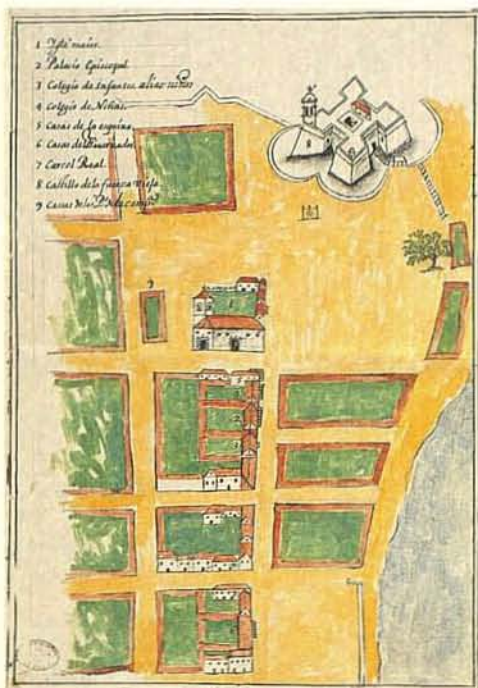 1 maior.
2 Palacio Episcopal
3 Colegio de Infantes alias niños
4 Colegio de Niñas.
5 Casas de la esquina
6 Casas del Governador
7 Carcel Real.
8 Castillo de la fuerza Vieja
9 Casas de los
9
1